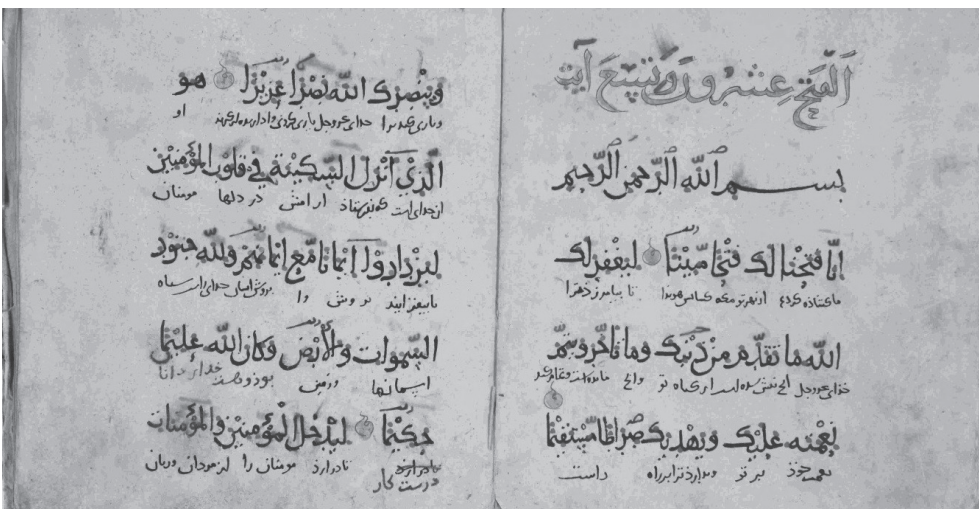 الفتح عشرون وتسع آيت
بسم الله الرحمن الرحيم
اِنَّا فَتَحْنا لك فَتْحًا مُّبِيْنًا لِيَغْفِرَ لك
ما كشاذه كردم از بهر تو مكه هويدا تا بيامرزد
الله ما تَقَدَّمَ مِنْ ذَنْبِك وما تَأَخَّرَ ويُتِمَّ
خداى عزوجل انچ شده است از كناه تو وانچ
نِعْمَته عَلَيْك ويَهْدِيَك صِرَاطًا مُّسْتَقِيْمًا
نعمت خوذ بر تو ترا براه راست
ويَنْصُرَك الله نَصْرًا عَزِيْزًا هو
ويارى ترا خداى عزوجل يارى كردنى او
الَّذِيْ اَنْزَلَ السَّكِيْنَةَ فِيْ قلوب المُؤْمِنِيْن
ان خداى است كه ارامش در دلها مومنان
لِيَزْدَادُوْا اِيْمَانًا مَّعَ اِيْمَانِهِمْ ولله جنود
تا بيفزايند را سپاه
السَّموات والاَرْض وكان الله عَلِيْمًا
اسمانها وزمين بوذ وهست خداى دانا
حَكِيْمًا لِيُدْخِلَ المُؤْمِنِيْن والمُؤْمِنات
درست كار تا درارذ مومنان را از مردان وزنان